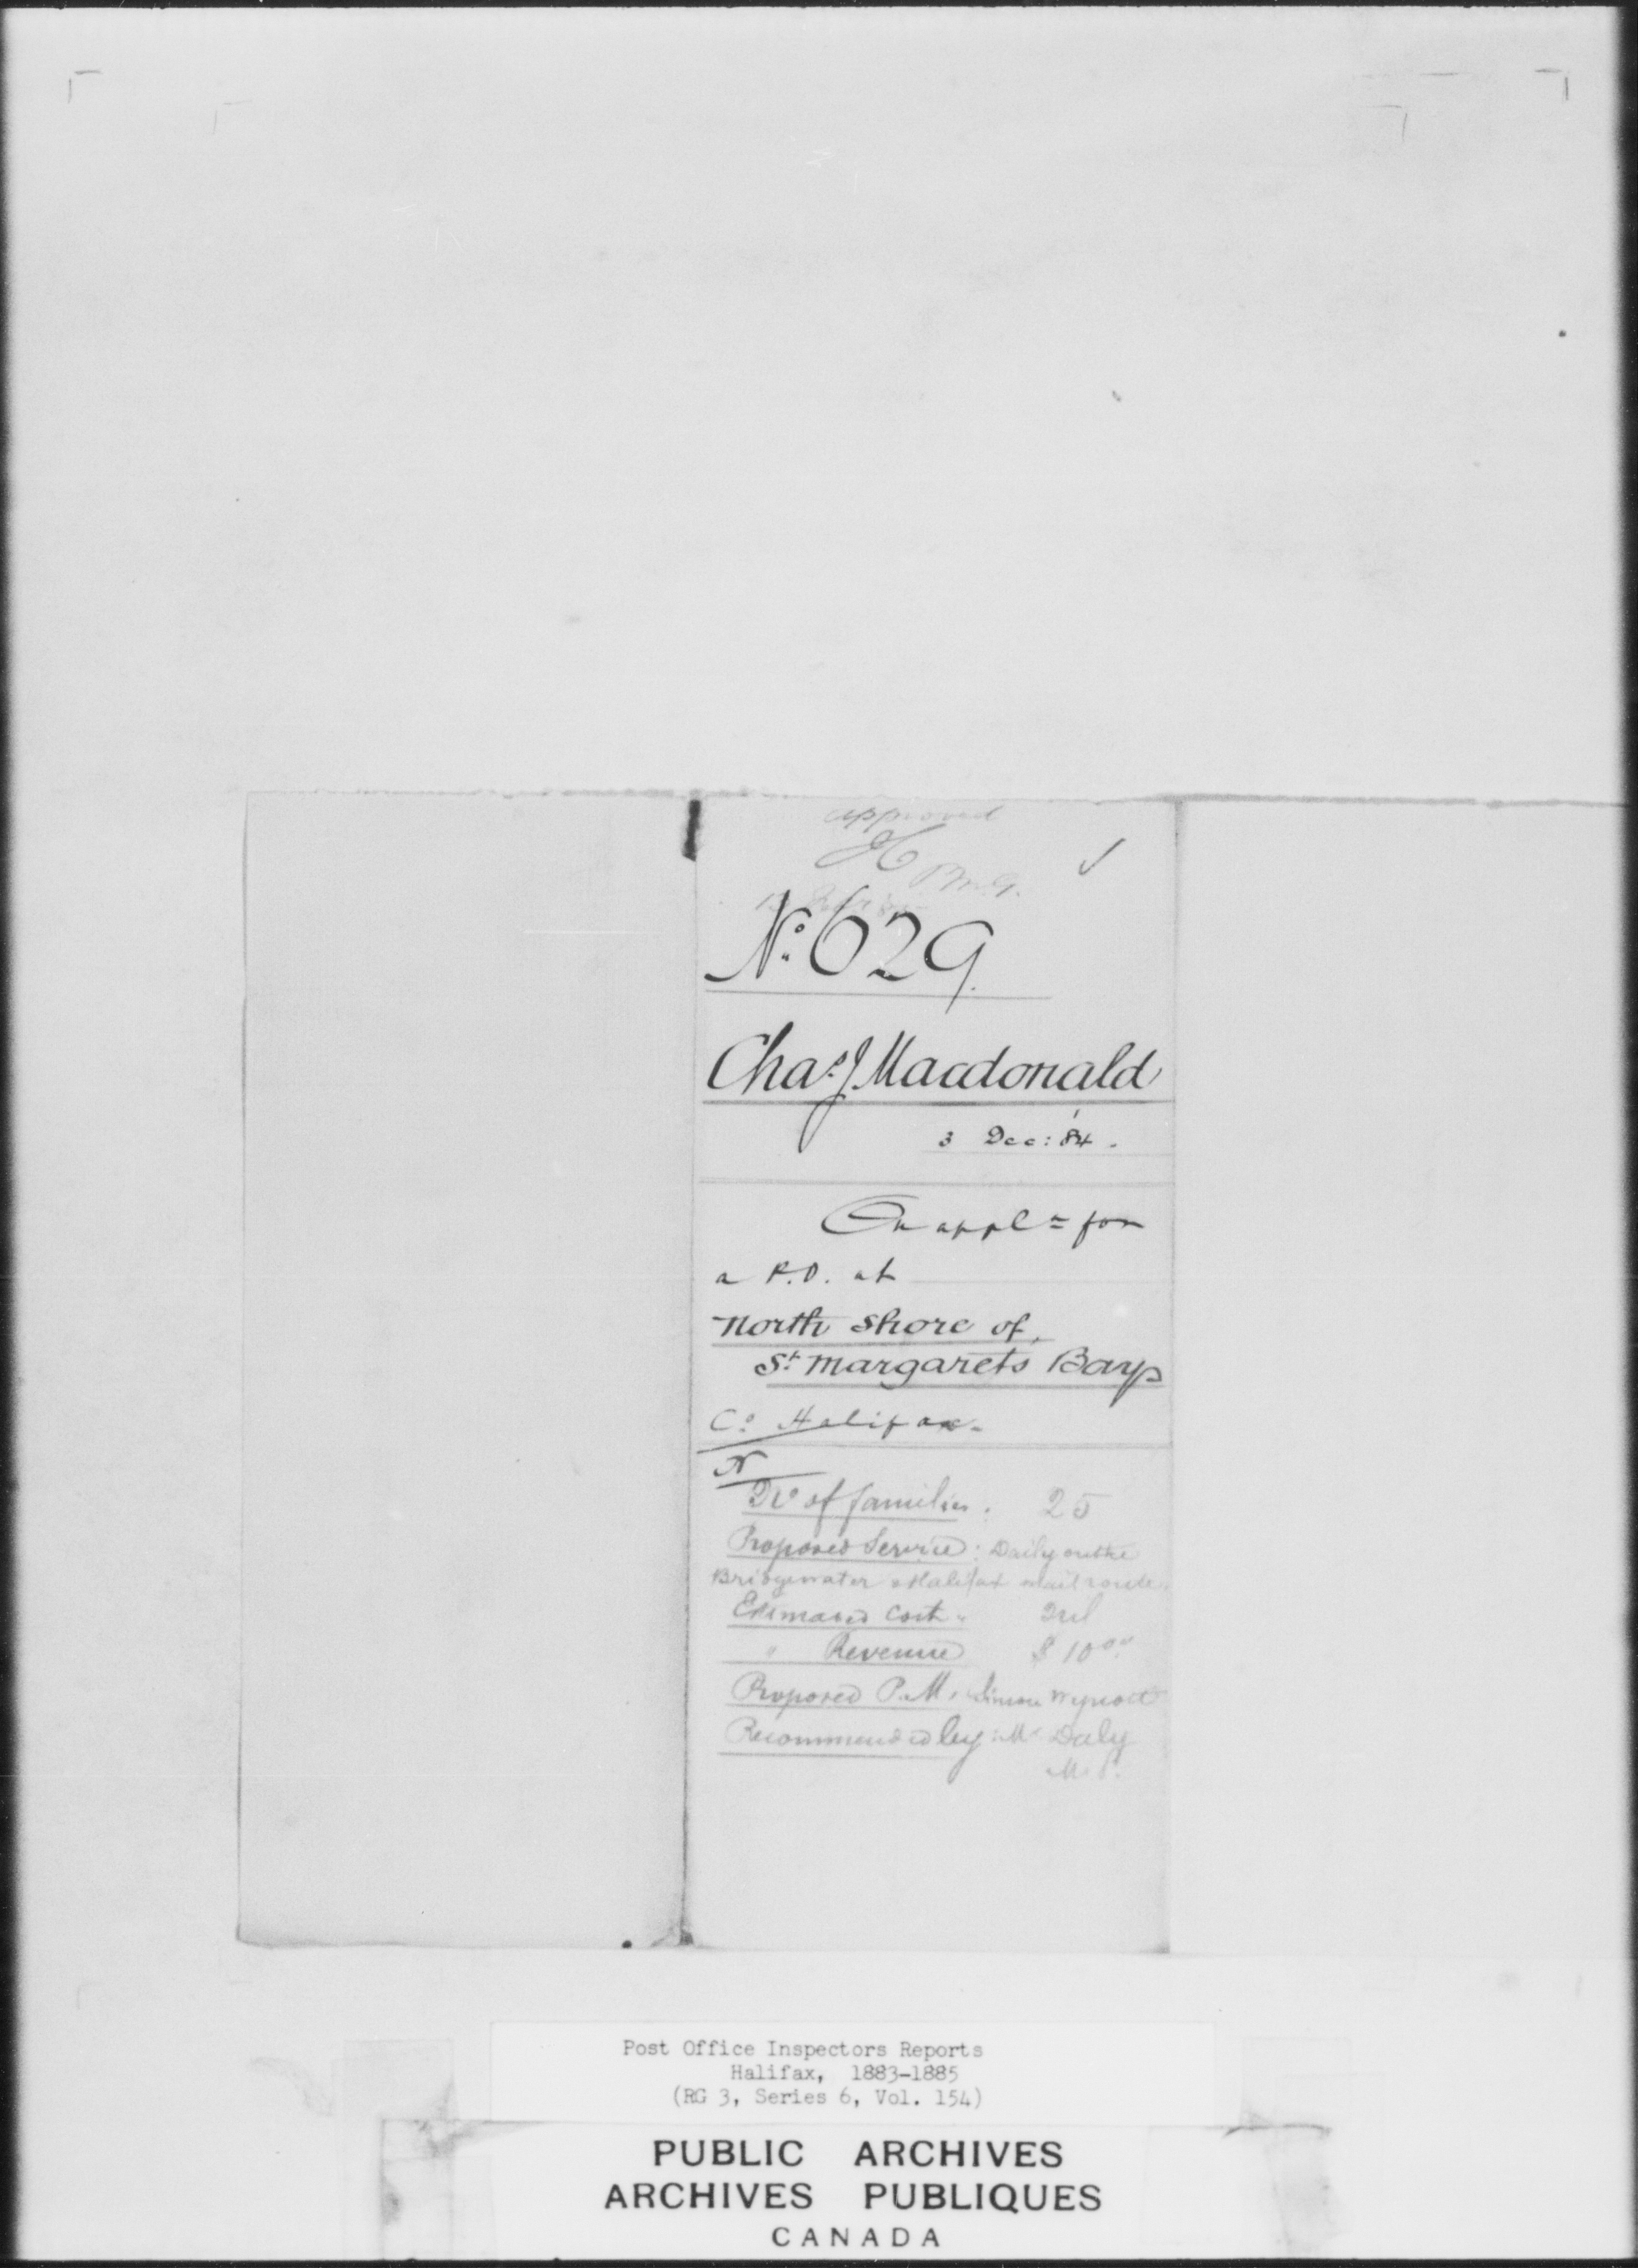 approved
P.M.G.
No. 629.
Chas. J. Macdonald
3 Dec: '84.
On appln for
a P.O. at
North Shore of
St Margarets Bay
Co. Halifax.
N
No of families. 25
Proposed Service: Daily on the
Bridgewater & Halifax mail route.
Estimated Cost " Nil
" Revenue $10.00
Proposed P.M. Simon
Recommended by: Mr Daly
M.P.
Post Office Inspectors Reports
Halifax, 1883-1885
(RG 3, Series 6, Vol. 154)
PUBLIC ARCHIVES
ARCHIVES PUBLIQUES
CANADA